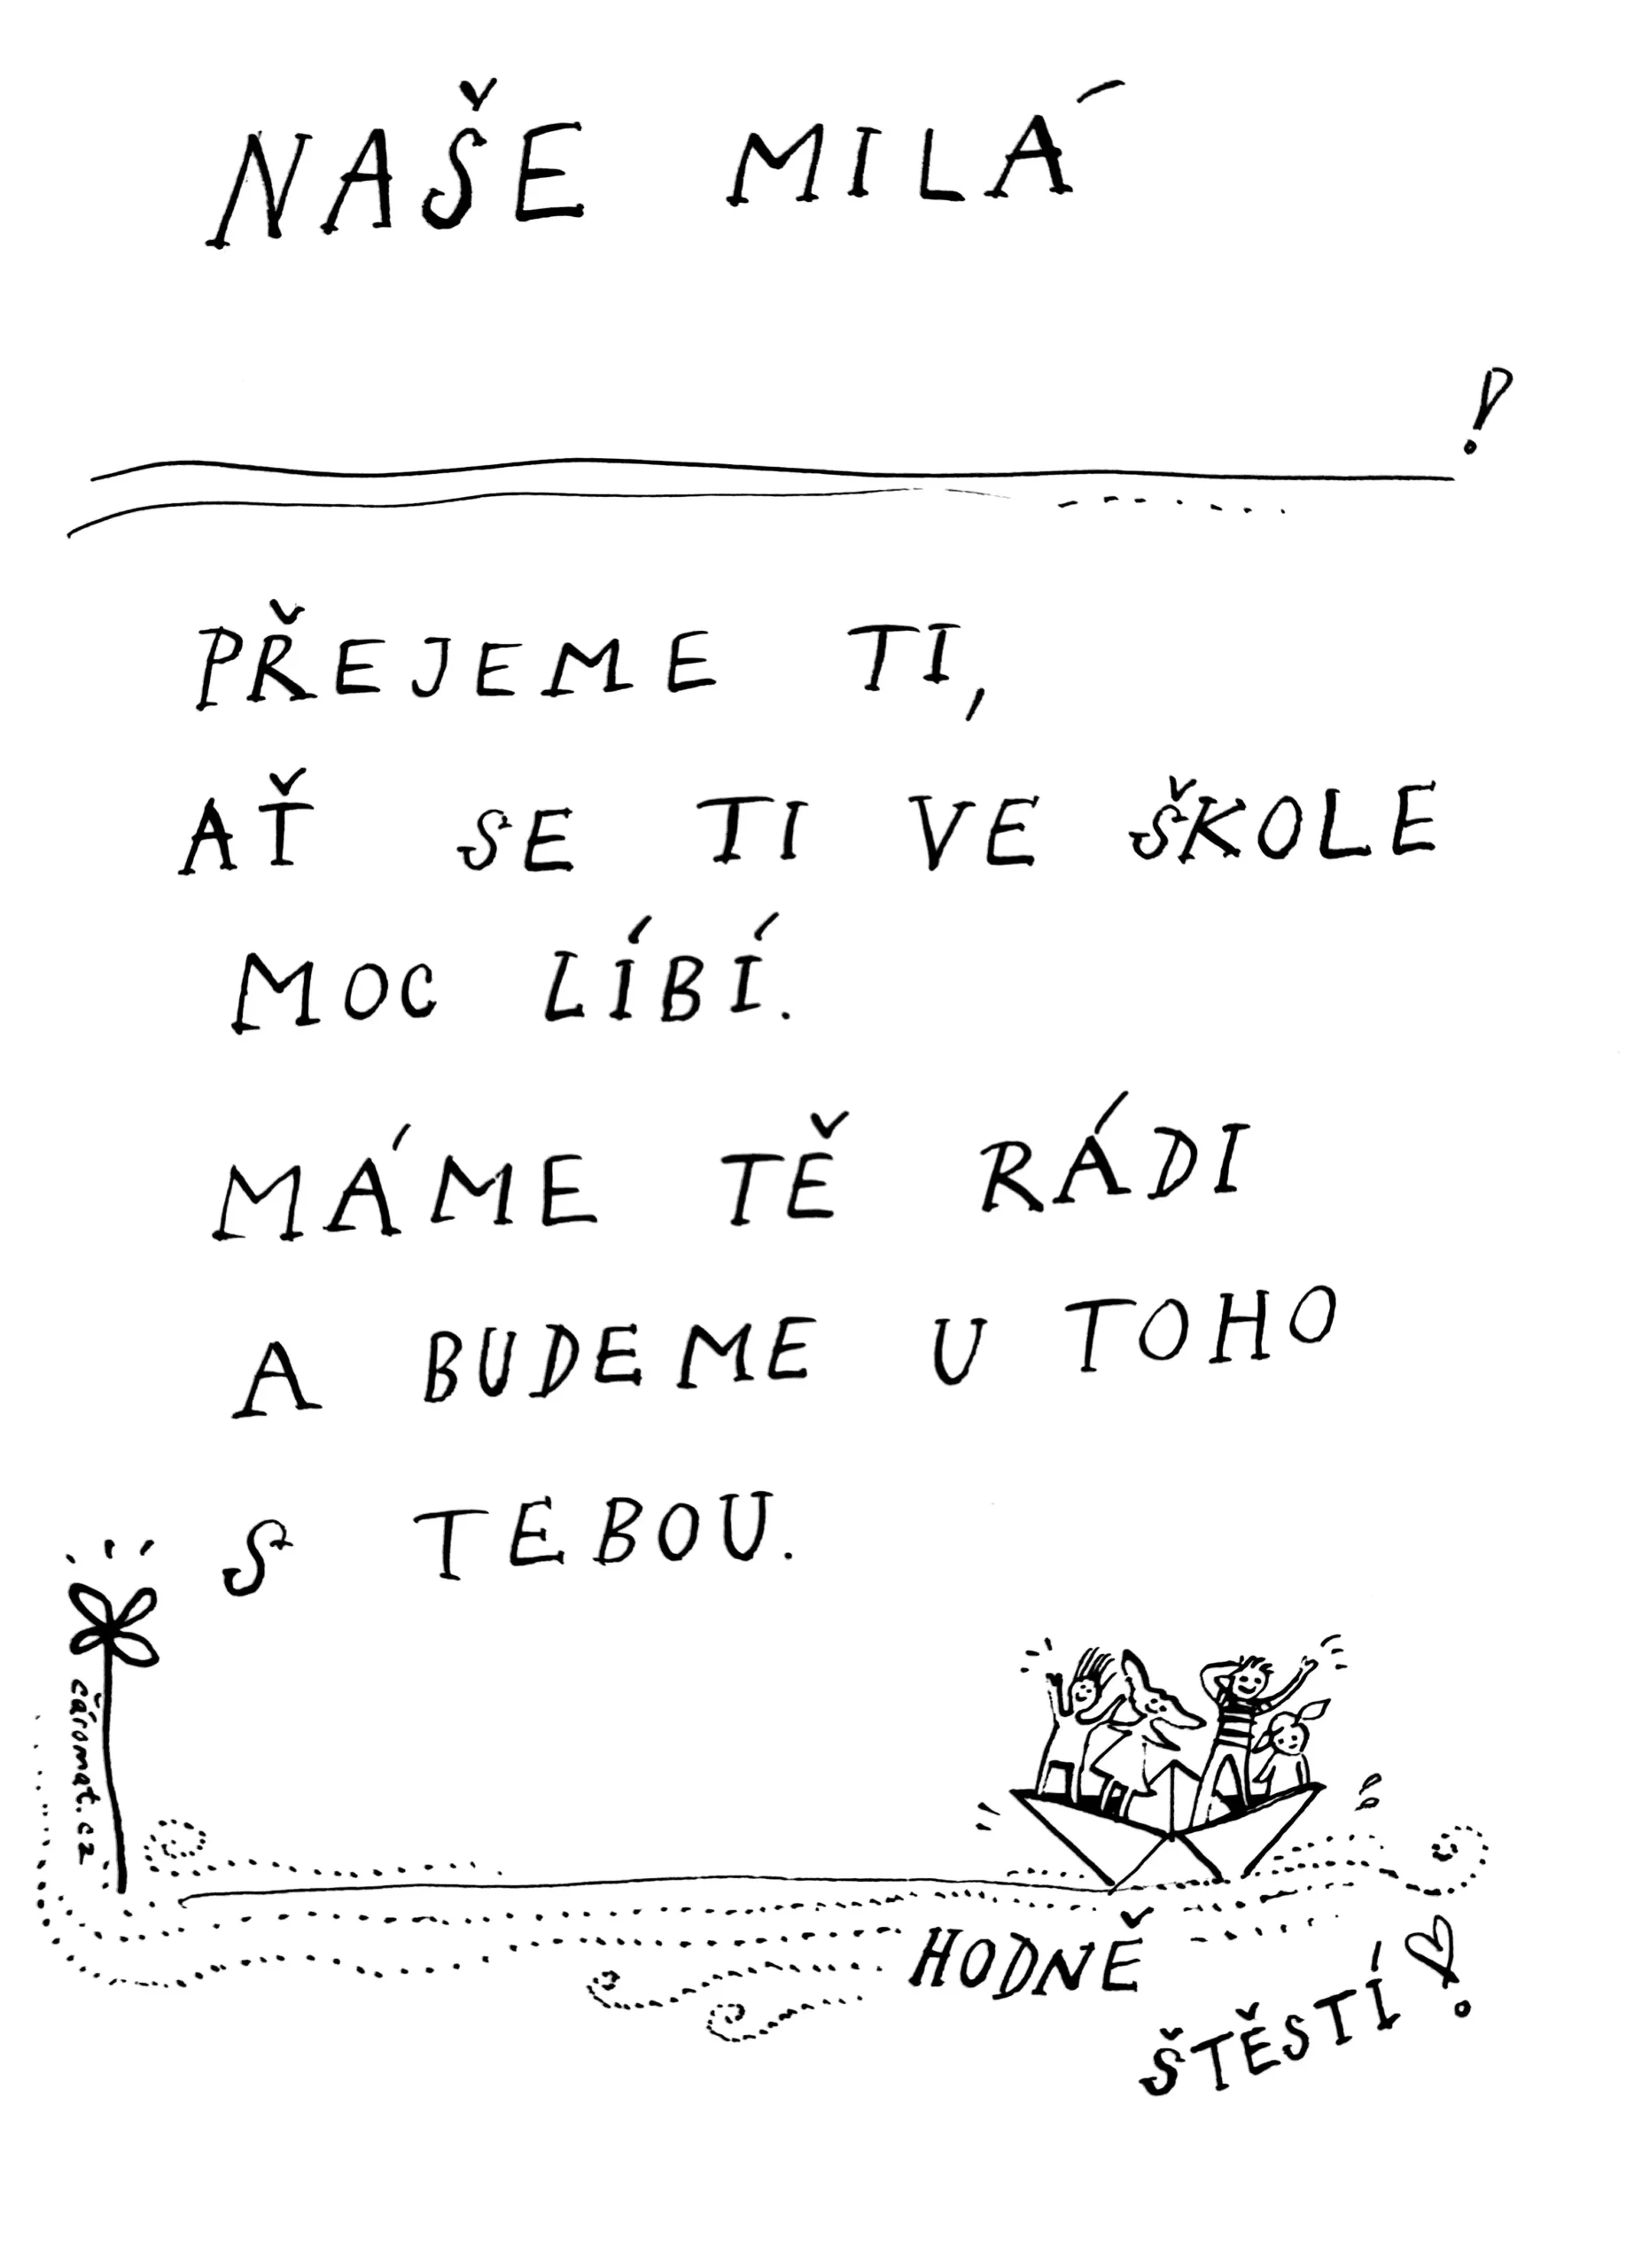 NAŠE MILÁ
!
PŘEJEME TI,
AŤ SE TI VE ŠKOLE
MOC LÍBÍ.
MÁME TĚ RÁDI
A BUDEME U TOHO
S TEBOU.
čáromat.cz
HODNĚ
ŠTĚSTÍ!